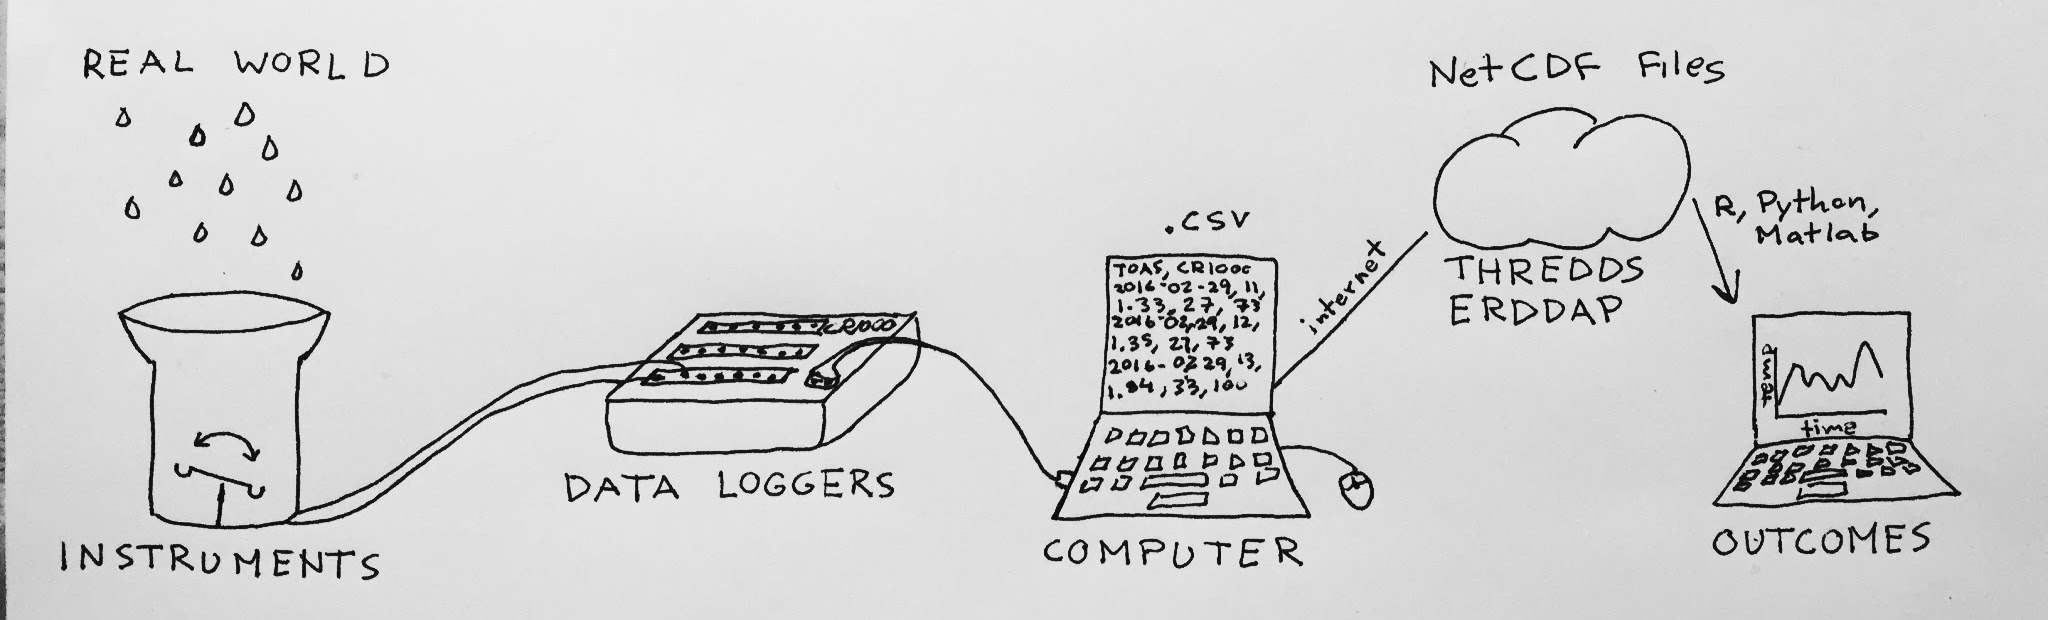 REAL WORLD
INSTRUMENTS
CR1000
DATA LOGGERS
.CSV
TOA5, CR1000
2016-02-29, 11,
1.33, 27, 73
2016-02-29, 12,
1.35, 27, 73
2016-02-29, 13,
1.84, 33, 100
COMPUTER
internet
NetCDF Files
THREDDS
ERDDAP
R, Python,
Matlab
time
OUTCOMES